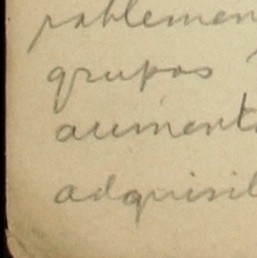 pablemen
grupos
aument
adquisi